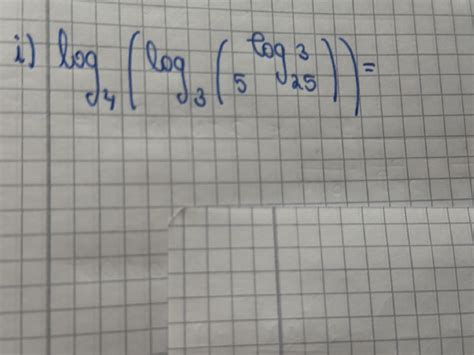 i) log₄(log₃(5^(log₂₅ 3)))=